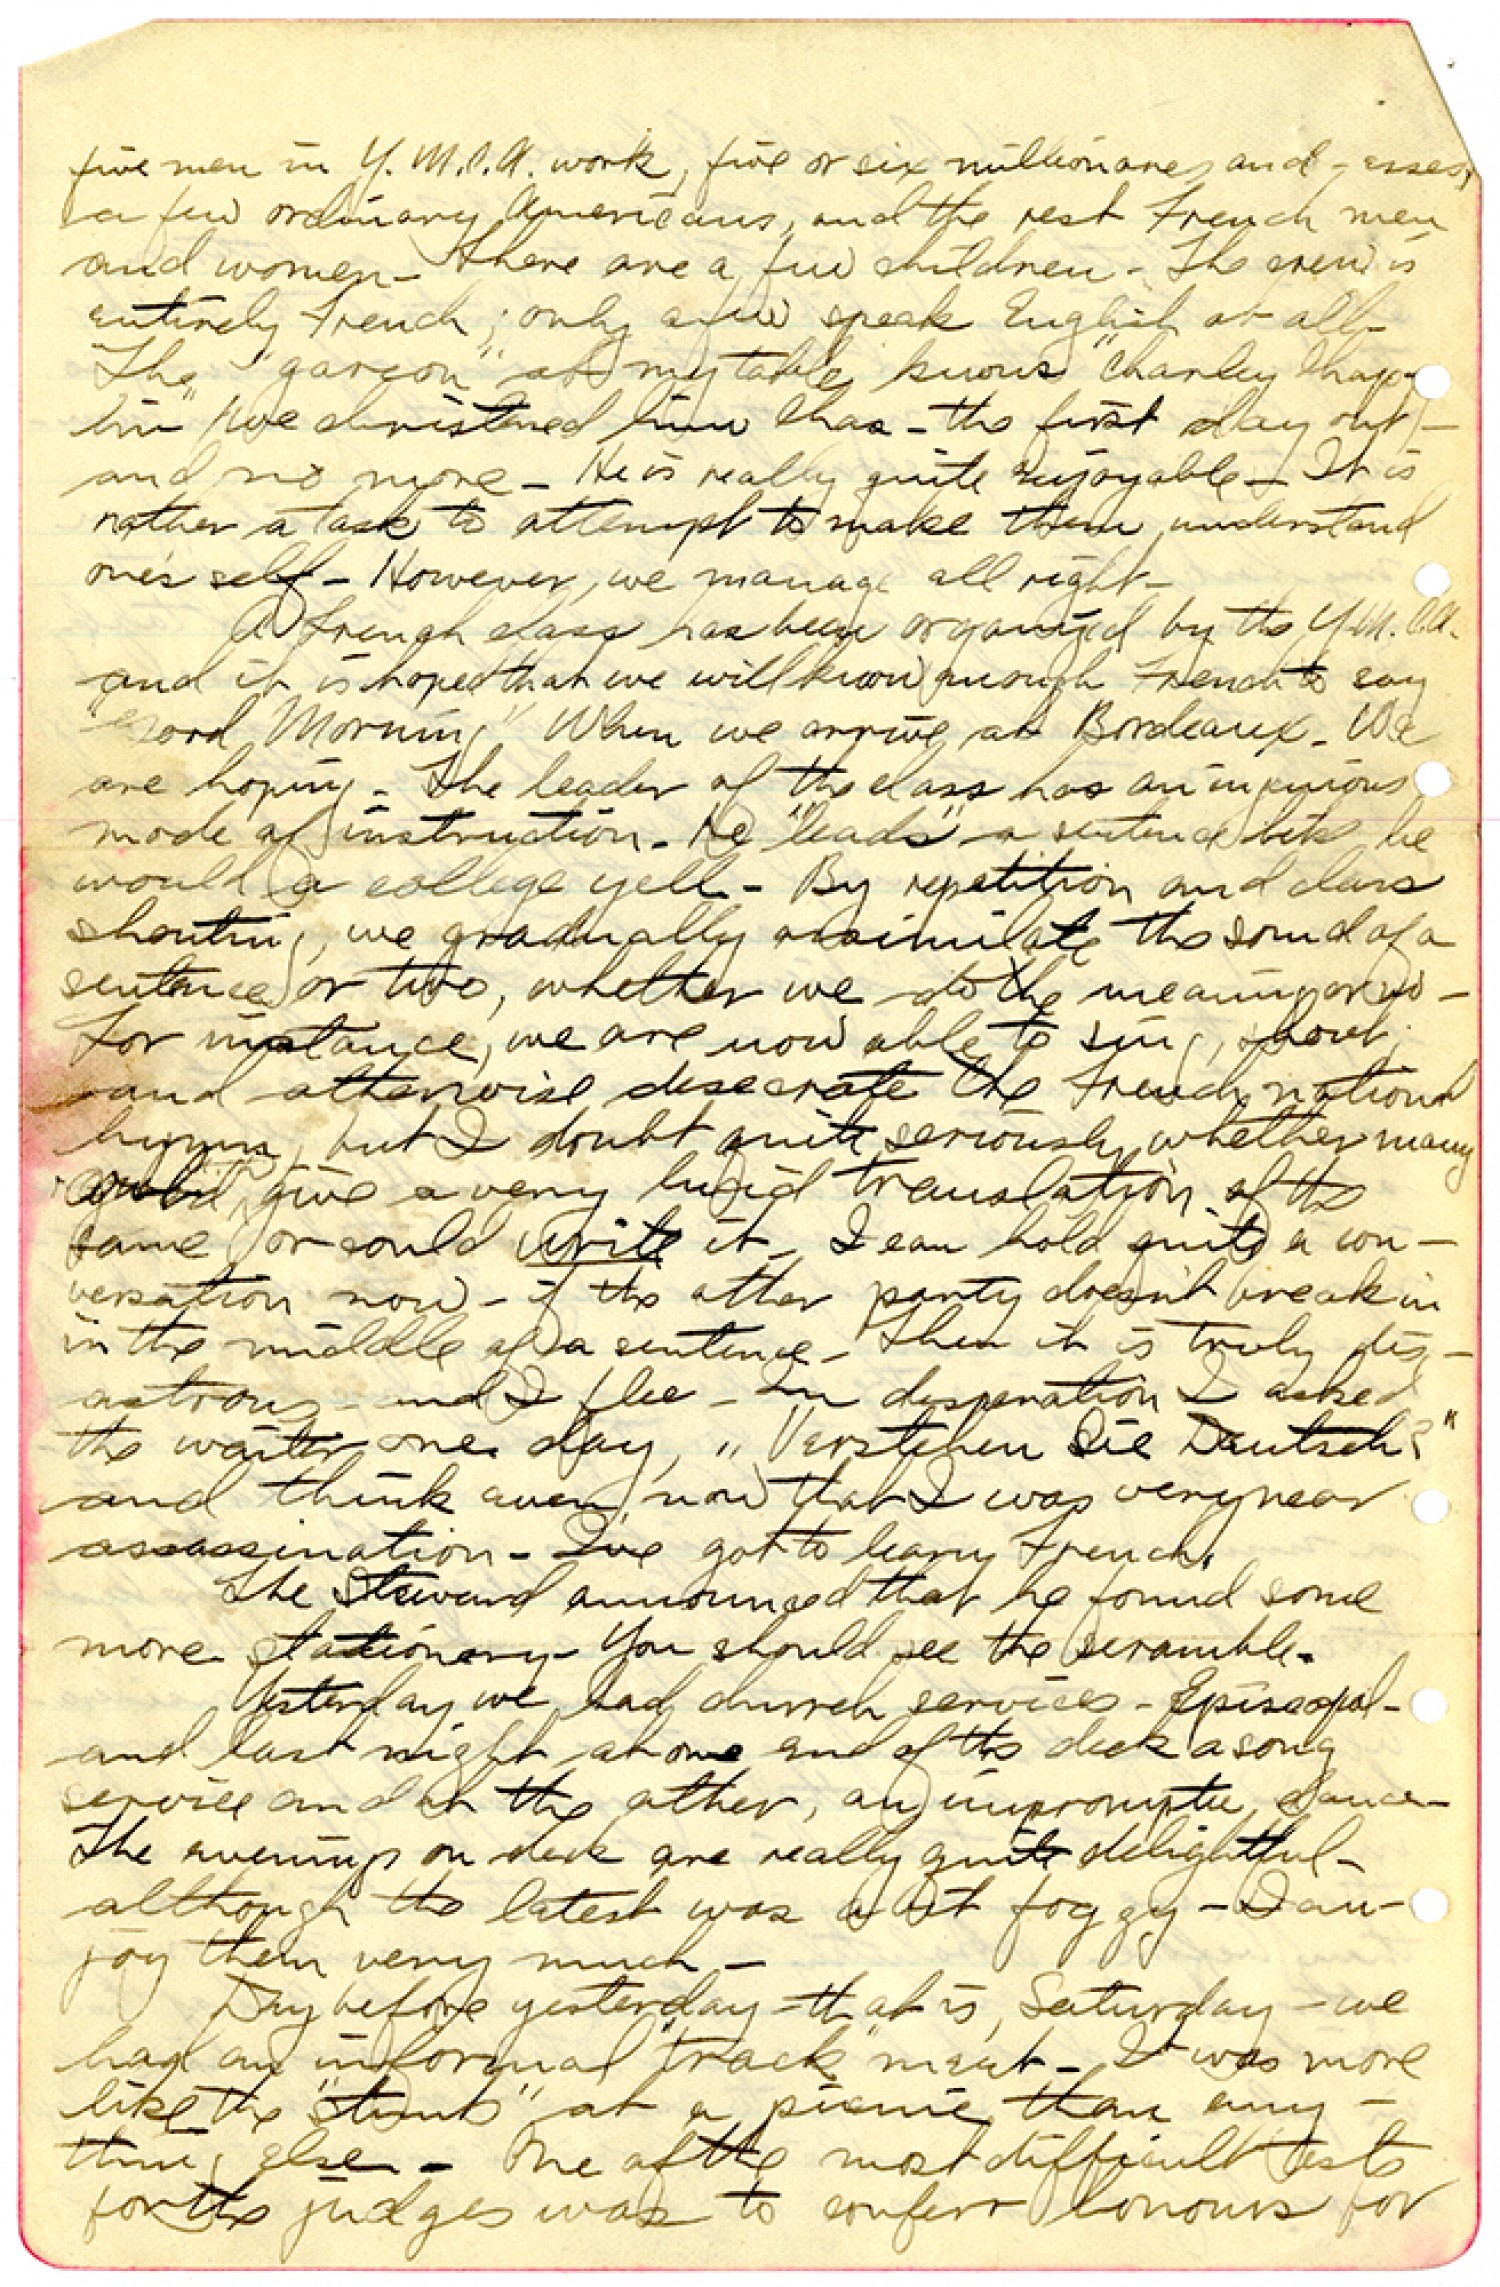 five men in Y.M.C.A. work, five or six millionares and -esses,
a few ordinary Americans, and the rest French men
and women - There are a few children - The crew is
entirely French; only a few speak English at all -
The "garcon" at my table knows "Charley Chap-
lin" (we christened him Chas - the first day out) -
and no more - He is really quite enjoyable - It is
rather a task to attempt to make them understand
one's self - However, we manage all right -
A French class has been organized by the Y.M.C.A.
and it is hoped that we will know enough French to say
"Good Morning" When we arrive at Bordeaux - We
are hoping - The leader of the class has an ingenious
mode of instruction - He "leads" a sentence like he
would a college yell - By repetition and class
shouting, we gradually assimilate the sound of a
sentence or two, whether we do the meaning or no -
For instance, we are now able to sing, shout,
and otherwise desecrate the French national
hymn, but I doubt quite seriously whether many
could give a very lucid translation of the
same or could write it - I can hold quite a con-
versation now - if the other party doesn't break in
in the middle of a sentence - Then it is truly dis-
astrous - and I flee - In desperation I asked
the waiter one day, "Verstehen Sie Deutsch?"
and think even now that I was very near
assassination - I've got to learn French.
The Steward announced that he found some
more stationery - You should see the scramble.
Yesterday we had church services - Episcopal -
and last night at one end of the deck a song
service and at the other, an impromptu dance -
The evenings on deck are really quite delightful -
although the latest was a bit foggy - I en-
joy them very much -
Day before yesterday - that is, Saturday - we
had an informal "track" meet - It was more
like the "stunts" at a picnic than any -
thing else - One of the most difficult tests
for the judges was to conferr honours for